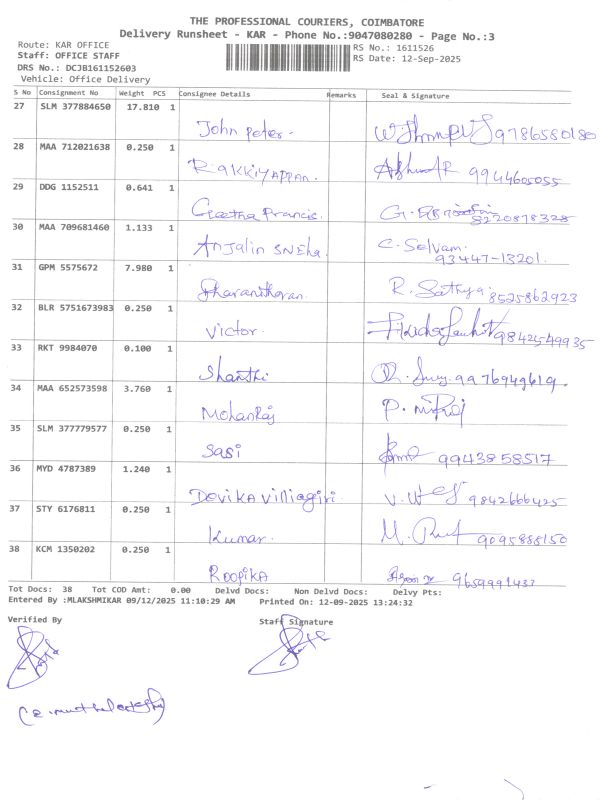 THE PROFESSIONAL COURIERS, COIMBATORE
Delivery Runsheet - KAR - Phone No.:9047080280 - Page No.:3
Route: KAR OFFICE RS No.: 1611526
Staff: OFFICE STAFF RS Date: 12-Sep-2025
DRS No.: DCJB161152603
Vehicle: Office Delivery
S No Consignment No Weight PCS Consignee Details Remarks Seal & Signature
27 SLM 377884650 17.810 1
John Peter. 9786580180
28 MAA 712021638 0.250 1
RAKKIYAPPAN. 9944605055
29 DDG 1152511 0.641 1
Geetha Francis. 8220878328
30 MAA 709681460 1.133 1
Anjalin SNEha. C. Selvam.
93447-13201.
31 GPM 5575672 7.980 1
Dharanitharan. R. Sathya 8525862923
32 BLR 5751673983 0.250 1
Victor. 9842549935
33 RKT 9984070 0.100 1
Shanthi 9976949619.
34 MAA 652573598 3.760 1
MohanRaj P.
35 SLM 377779577 0.250 1
Sasi 9943858517
36 MYD 4787389 1.240 1
Devika Villiagiri 9842666425
37 STY 6176811 0.250 1
Kumar. 9095888150
38 KCM 1350202 0.250 1
ROOPIKA 9659991437
Tot Docs: 38 Tot COD Amt: 0.00 Delvd Docs: Non Delvd Docs: Delvy Pts:
Entered By :MLAKSHMIKAR 09/12/2025 11:10:29 AM Printed On: 12-09-2025 13:24:32
Verified By Staff Signature